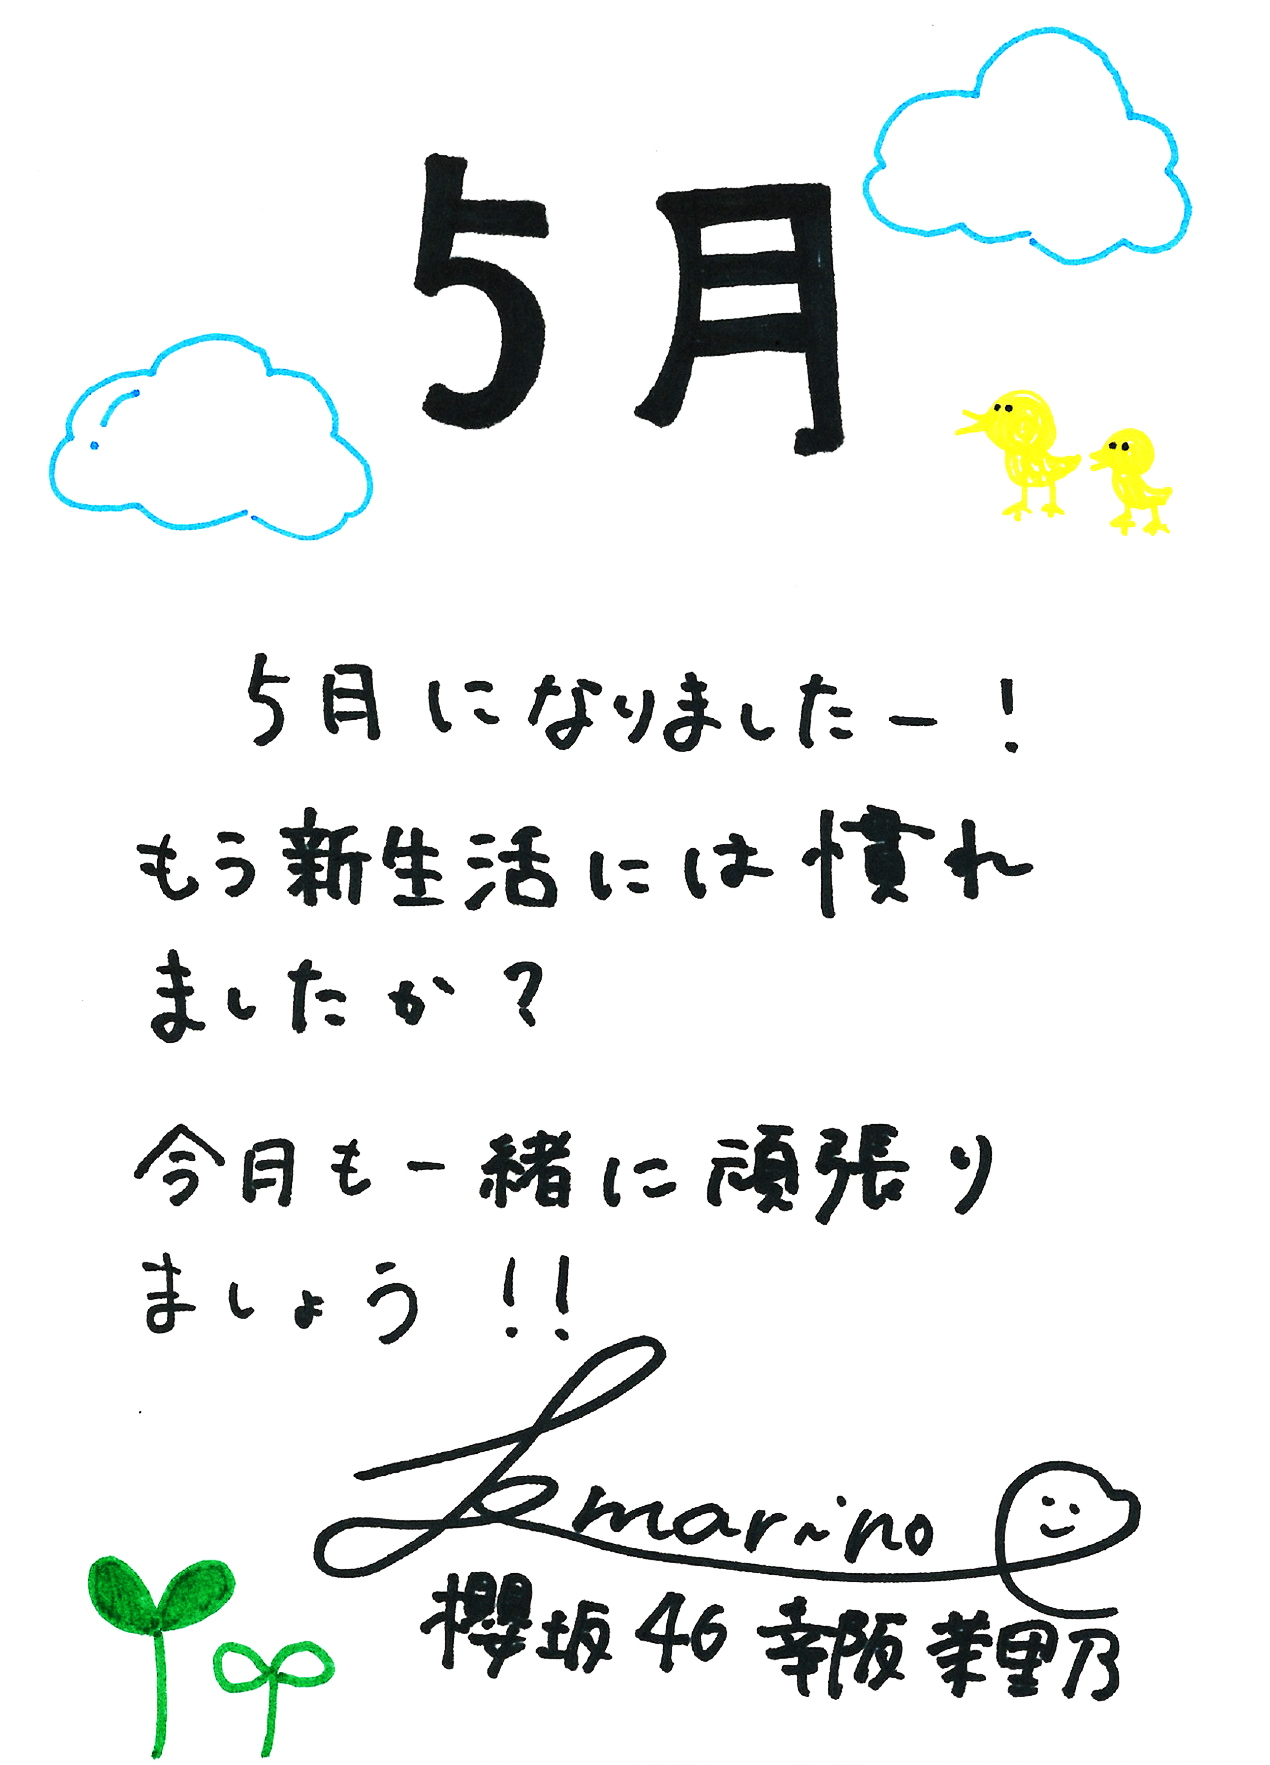 5月
5月になりましたー！
もう新生活には慣れ
ましたか？
今月も一緒に頑張り
ましょう！！
marino
櫻坂46 幸阪茉里乃